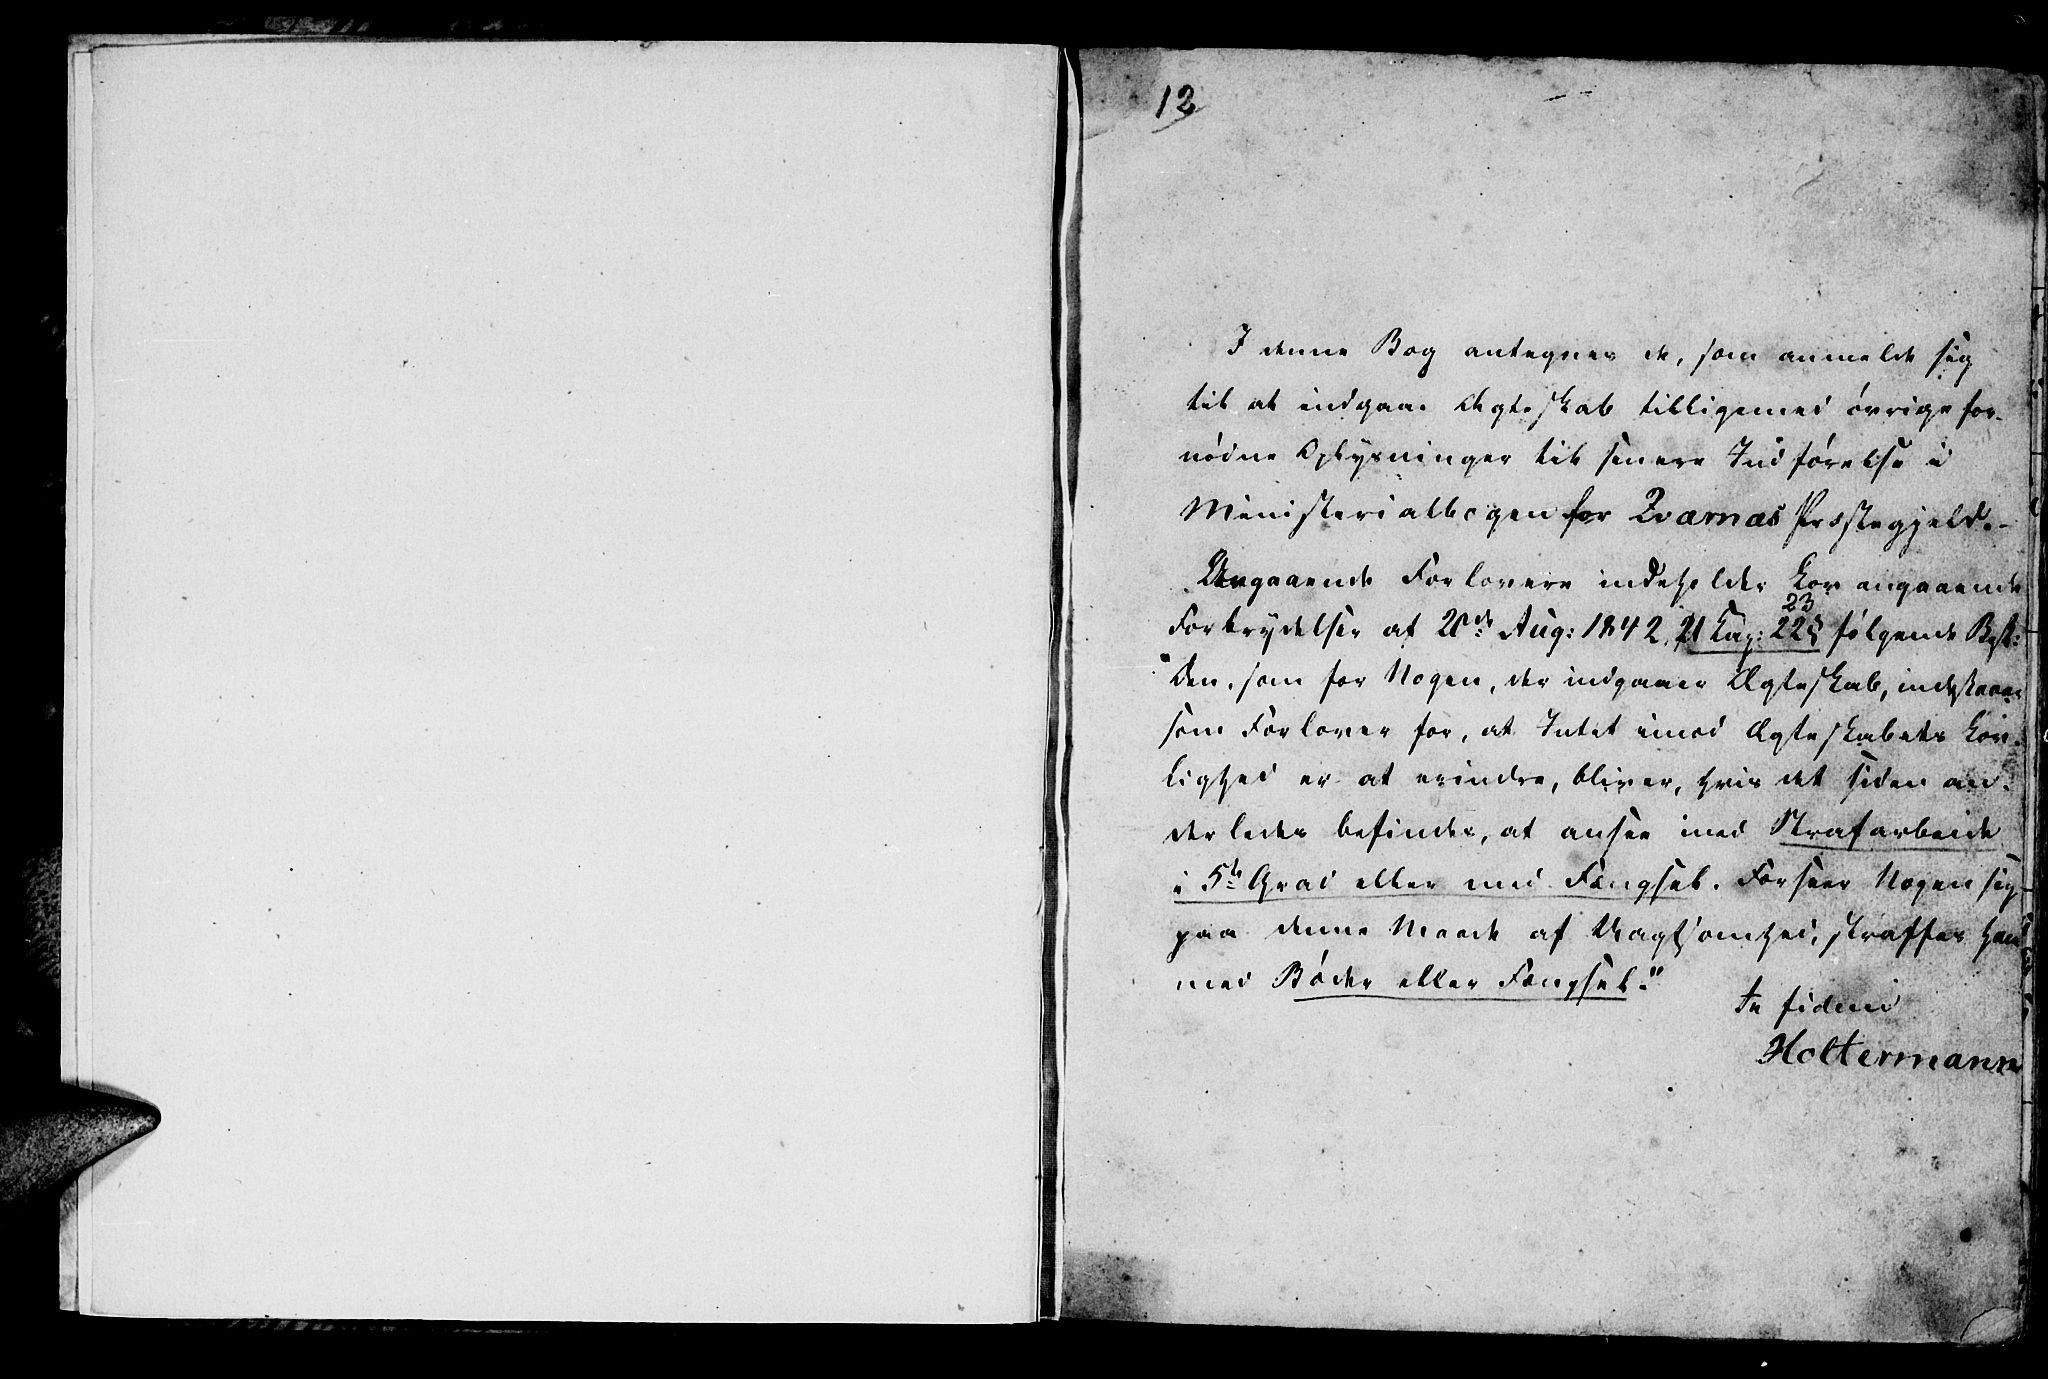 12
I denne Bog antegnes de, som anmelde sig
til at indgaae Ægteskab tilligemed øvrige for-
nødne Oplysninger til senere Indførelse i
Ministerialbogen for Qværnæs Præstegjeld.-
Angaaende Forlovere indeholder Lov angaaende
23
Forbrydelser af 20de Aug: 1842, 21 Cap: 22§ følgende Best:
"Den, som for Nogen, der indgaaer Ægteskab, indestaaer
som Forlover for, at Intet imod Ægteskabets Lov-
lighed er at erindre, bliver, hvis det siden an-
derledes befindes, at ansee med Strafarbeide
i 5te Grad eller med Fængsel. Forseer Nogen sig
paa denne Maade af Uagtsomhed, straffes han
med Bøder eller Fængsel."
In fidem
Holtermann